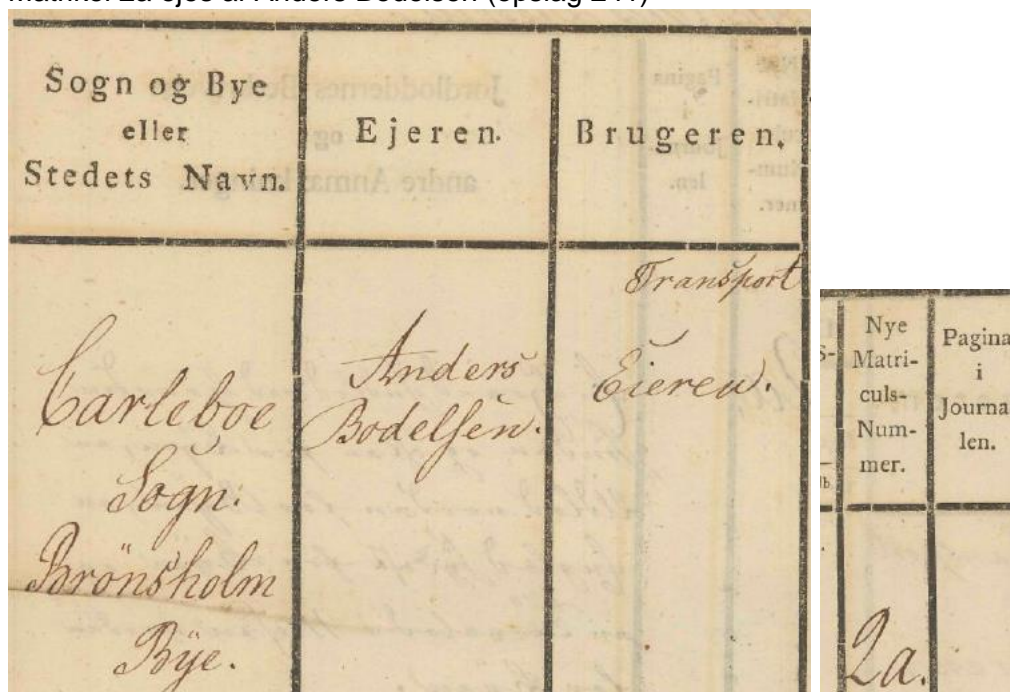 Matrikel 2a ejes af Anders Bodelsen (opslag 244)
Sogn og Bye
eller
Stedets Navn.
Ejeren.
Brugeren.
Transport
Carleboe
Sogn.
Brönsholm
Bÿe.
Anders
Bodelsen.
Eieren.
Nye
Matri-
culs-
Num-
mer.
Pagina
i
Journa
len.
2a.